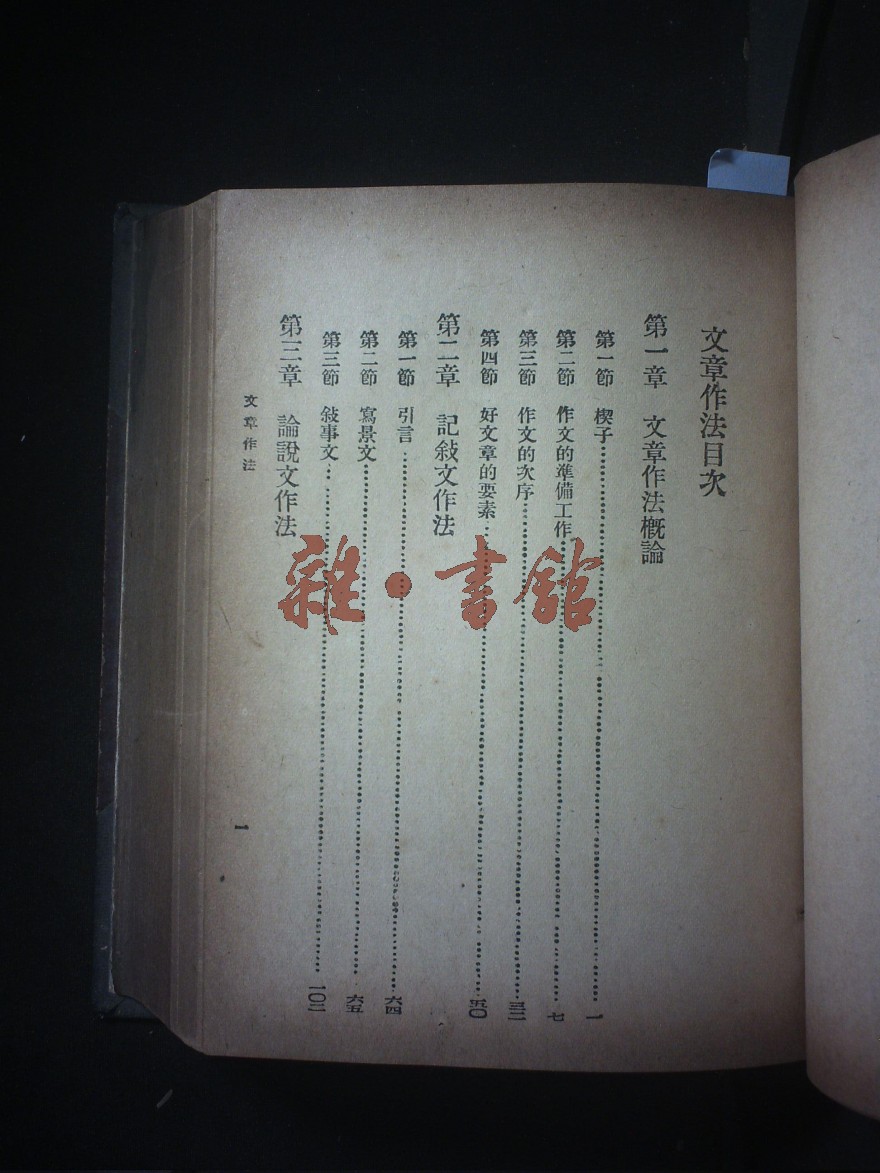 文章作法目次
第一章　文章作法概論
第一節　楔子……一
第二節　作文的準備工作……七
第三節　作文的次序……三二
第四節　好文章的要素……五〇
第二章　記敍文作法
第一節　引言……六四
第二節　寫景文……六五
第三節　敍事文……一〇二
第三章　論說文作法
文章作法
1
雜·書館